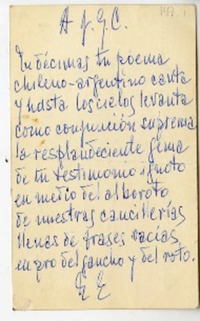 A J. G. C.
En décimas tu poema
chileno-argentino canta
y hasta los cielos levanta
como conjunción suprema
la resplandeciente gema
de tu testimonio ignoto
en medio del alboroto
de nuestras cancillerías
llenas de frases vacías
en pro del gaucho y del roto.